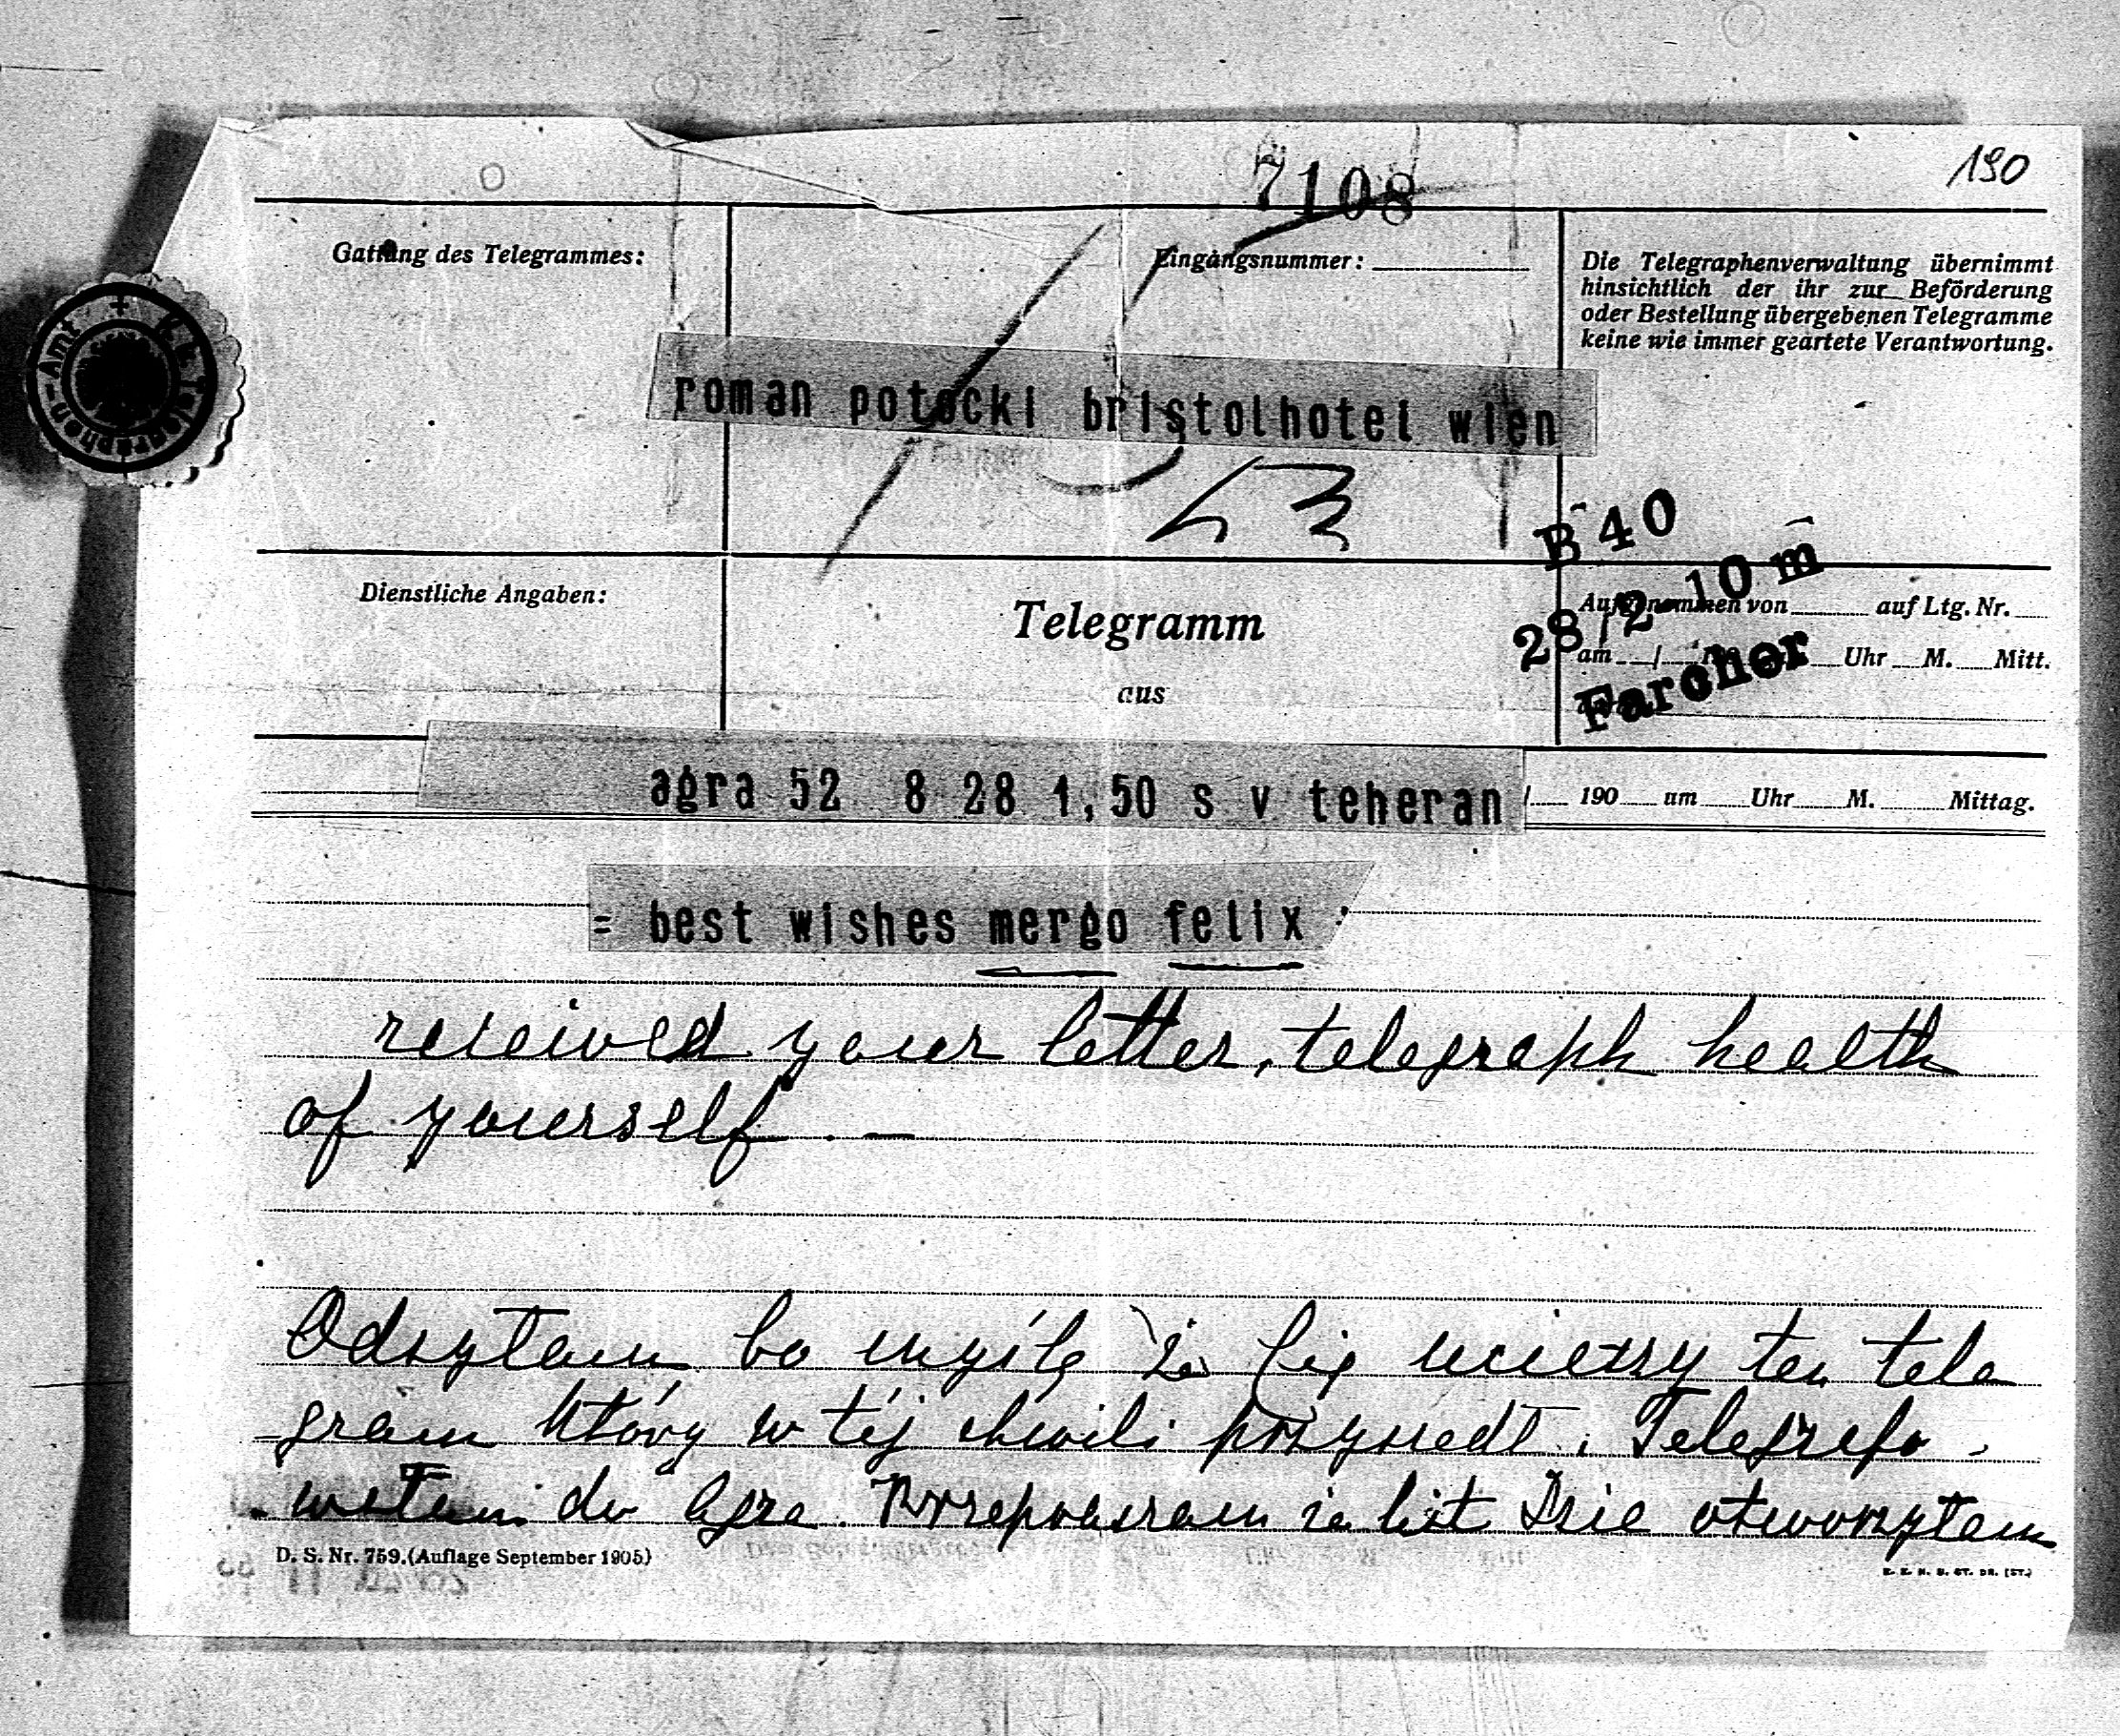 190
7108
Gattung des Telegrammes:
Eingangsnummer:
Die Telegraphenverwaltung übernimmt
hinsichtlich der ihr zur Beförderung
oder Bestellung übergebenen Telegramme
keine wie immer geartete Verantwortung.
K. K. Telegraphen-Amt
roman potocki bristolhotel wien
B 40
28/2 10 m
Farcher
Dienstliche Angaben:
Telegramm
aus
Aufgenommen von auf Ltg. Nr.
am / Uhr M. Mitt.
agra 52 8 28 1,50 s v teheran
/ 190 um Uhr M. Mittag.
= best wishes mergo felix
received your letter, telegraph health
of yourself. —
Odsyłam bo myślę że się ucieszy ten tele
-gram który w téj chwili przyszedł. Telegrafo-
wałem do Agra. Przepraszam że list otworzyłem
D. S. Nr. 759. (Auflage September 1905)